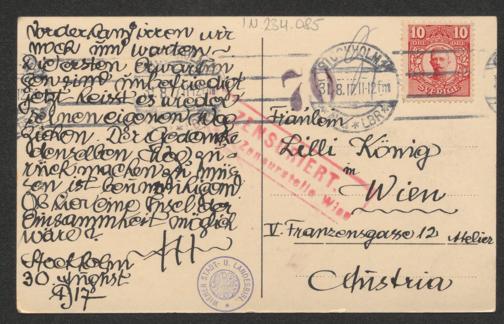 IN 234.085
Vorderhand irren wir
noch im warten –
Die ersten Erwartun
gen sind unbefriedigt
jetzt heisst es wieder
seinen eigenen Weg
ziehen. Der Gedanke
denselben Weg zu-
rück machen zu müs
sen ist
Ob hier eine Insel der
Einsamkeit möglich
wäre?
Stockholm
30 August
1917
STOCKHOLM
31.8.17 11-12 fm
LBR
70
10 10
SVERIGE
ZENSURIERT.
Zensurstelle Wien
Fräulein
Lilli König
in
Wien
V. Franzensgasse 12 Atelier
Austria
WIENER STADT- U. LANDESBIBL.